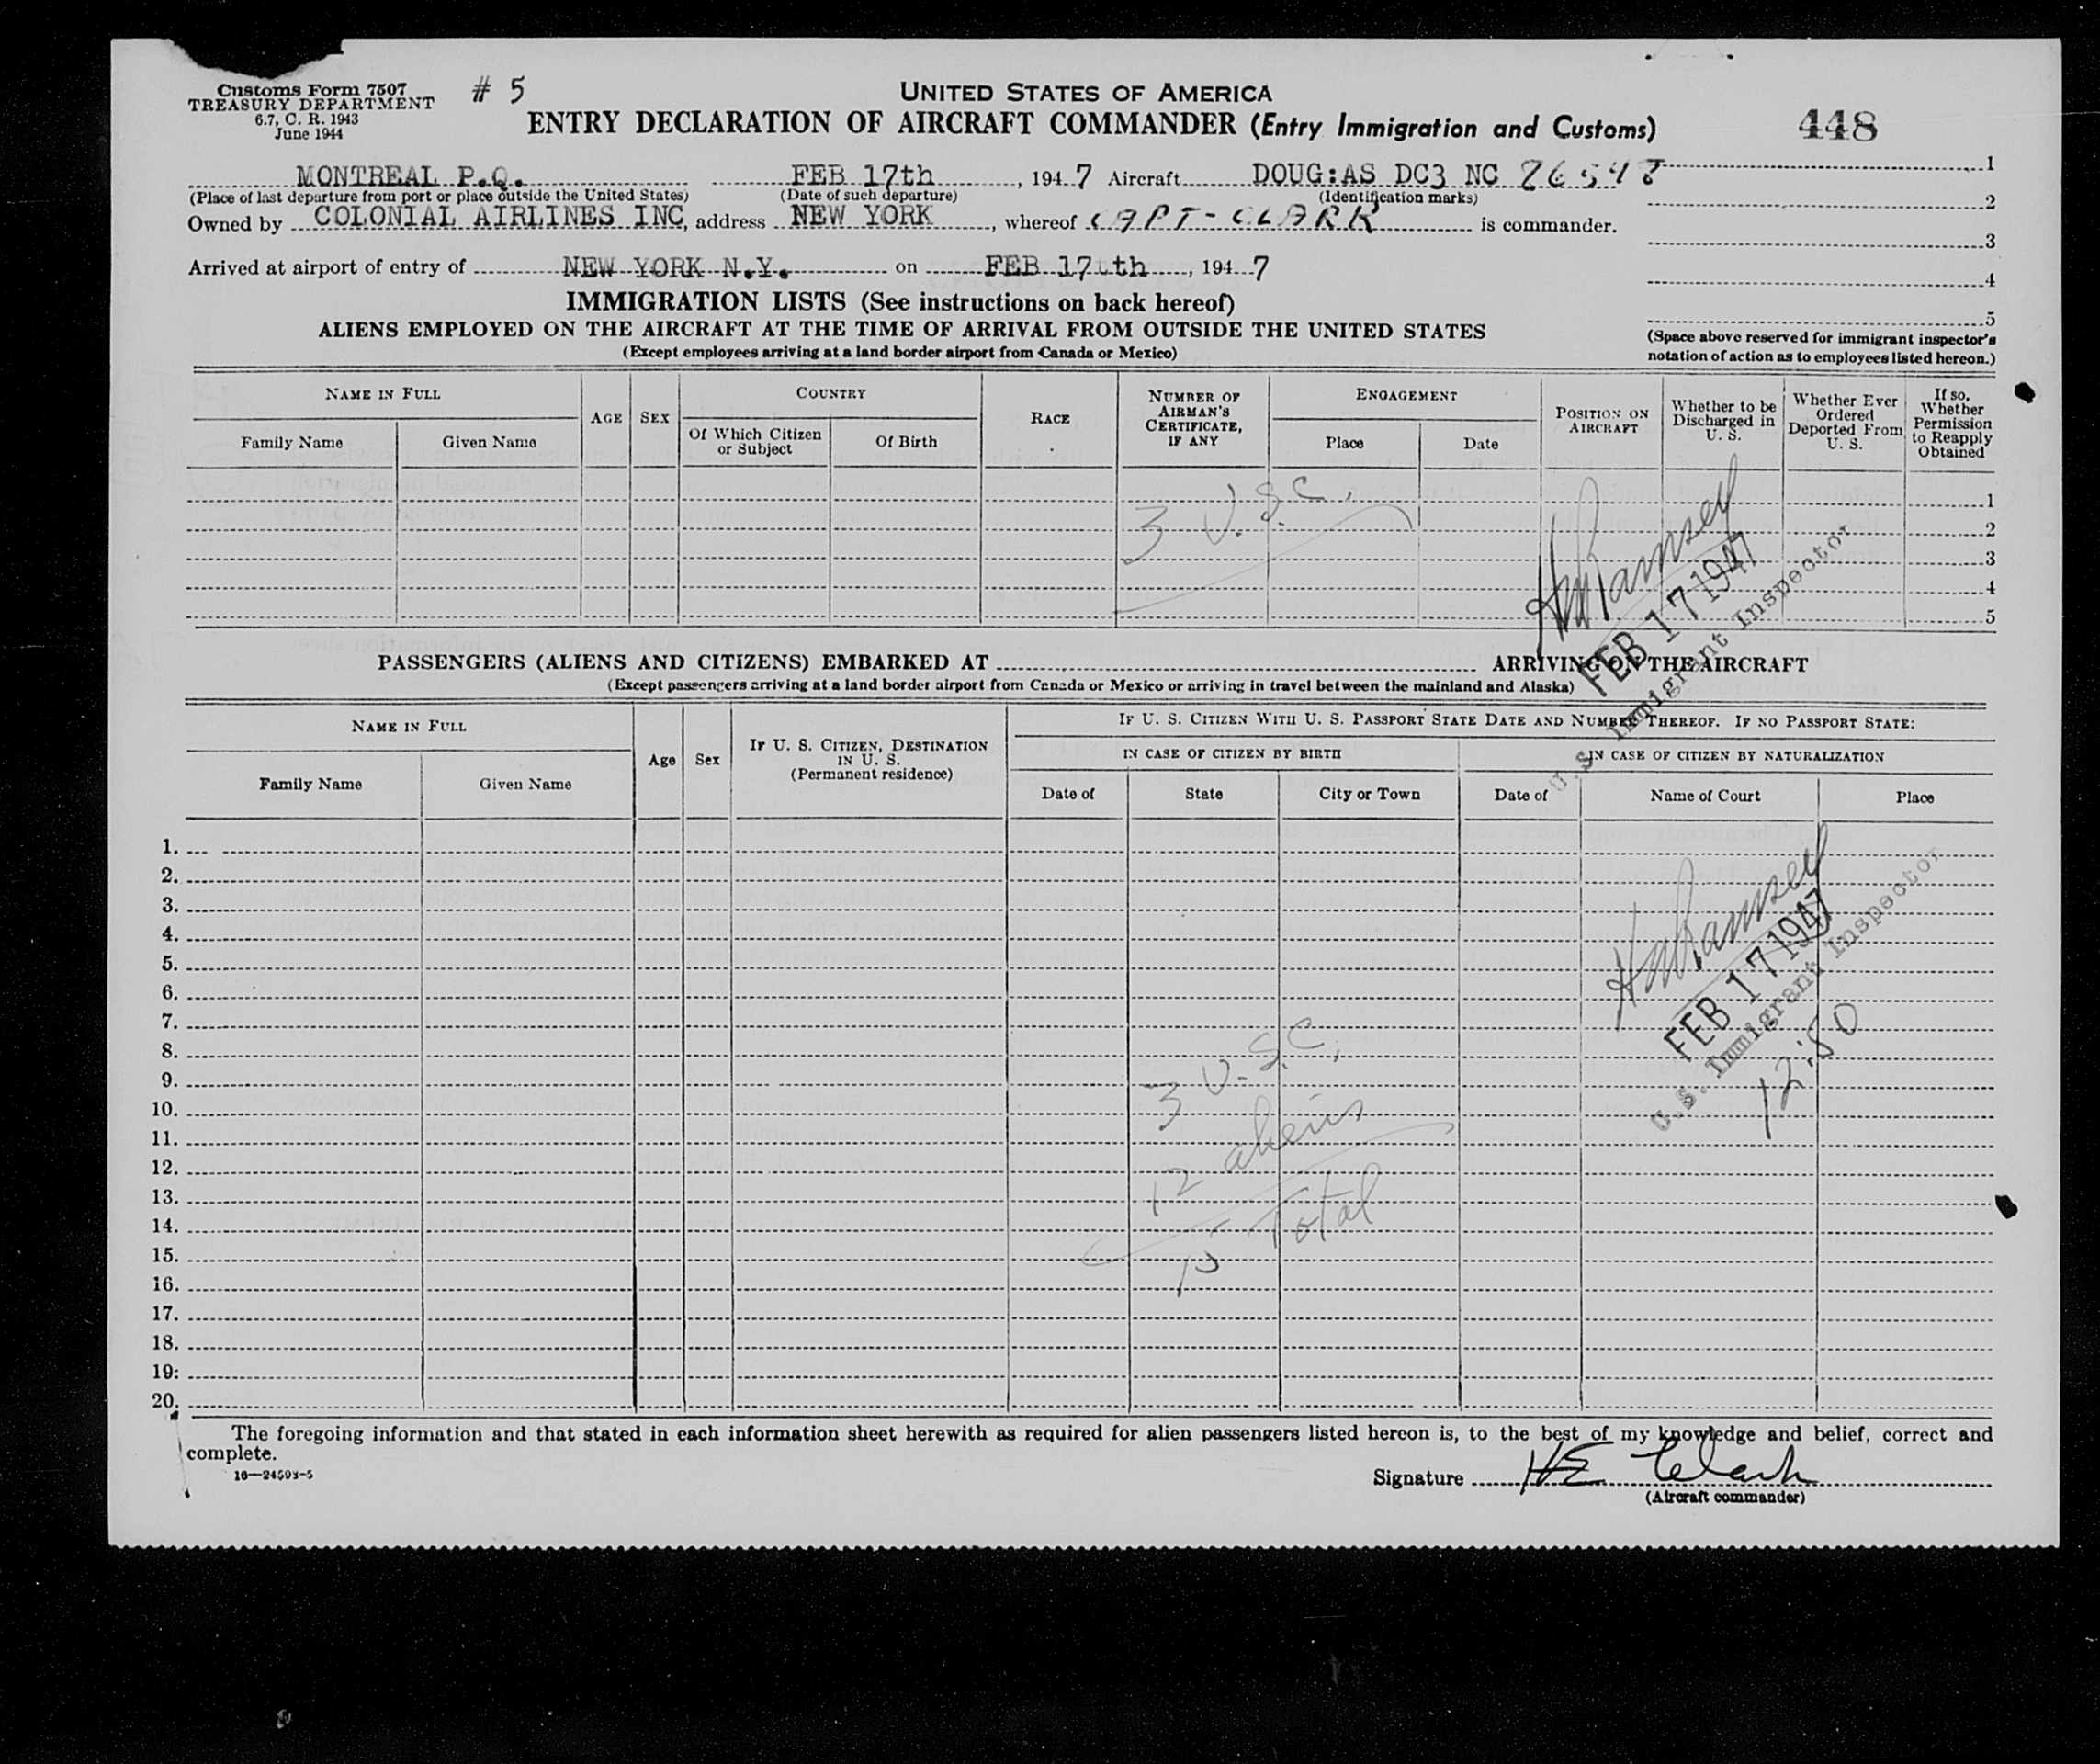 Customs Form 7507
TREASURY DEPARTMENT
6.7, C. R. 1943
June 1944
# 5
UNITED STATES OF AMERICA
ENTRY DECLARATION OF AIRCRAFT COMMANDER (Entry Immigration and Customs)
448
MONTREAL P.Q. FEB 17th, 1947 Aircraft DOUG:AS DC3 NC
(Place of last departure from port or place outside the United States) (Date of such departure) (Identification marks)
Owned by COLONIAL AIRLINES INC, address NEW YORK, whereof CAPT-CLARK is commander.
Arrived at airport of entry of NEW YORK N.Y. on FEB 17th, 1947
1
2
3
4
5
(Space above reserved for immigrant inspector's
notation of action as to employees listed hereon.)
IMMIGRATION LISTS (See instructions on back hereof)
ALIENS EMPLOYED ON THE AIRCRAFT AT THE TIME OF ARRIVAL FROM OUTSIDE THE UNITED STATES
(Except employees arriving at a land border airport from Canada or Mexico)
NAME IN FULL
Family Name
Given Name
AGE
SEX
COUNTRY
Of Which Citizen
or Subject
Of Birth
RACE
NUMBER OF
AIRMAN'S
CERTIFICATE,
IF ANY
ENGAGEMENT
Place
Date
POSITION ON
AIRCRAFT
Whether to be
Discharged in
U. S.
Whether Ever
Ordered
Deported From
U. S.
If so,
Whether
Permission
to Reapply
Obtained
1
2
3
4
5
3 U.S.C.
Ramsey
FEB 17 1947
U.S. Immigrant Inspector
PASSENGERS (ALIENS AND CITIZENS) EMBARKED AT ARRIVING ON THE AIRCRAFT
(Except passengers arriving at a land border airport from Canada or Mexico or arriving in travel between the mainland and Alaska)
NAME IN FULL
Family Name
Given Name
Age
Sex
IF U. S. CITIZEN, DESTINATION
IN U. S.
(Permanent residence)
IF U. S. CITIZEN WITH U. S. PASSPORT STATE DATE AND NUMBER THEREOF. IF NO PASSPORT STATE:
IN CASE OF CITIZEN BY BIRTH
Date of
State
City or Town
IN CASE OF CITIZEN BY NATURALIZATION
Date of
Name of Court
Place
1.
2.
3.
4.
5.
6.
7.
8.
9.
10.
11.
12.
13.
14.
15.
16.
17.
18.
19:
20.
Ramsey
FEB 17 1947
U.S. Immigrant Inspector
12:50
3 U.S.C.
12 aliens
15 Total
The foregoing information and that stated in each information sheet herewith as required for alien passengers listed hereon is, to the best of my knowledge and belief, correct and
complete.
Signature HE Clark
(Aircraft commander)